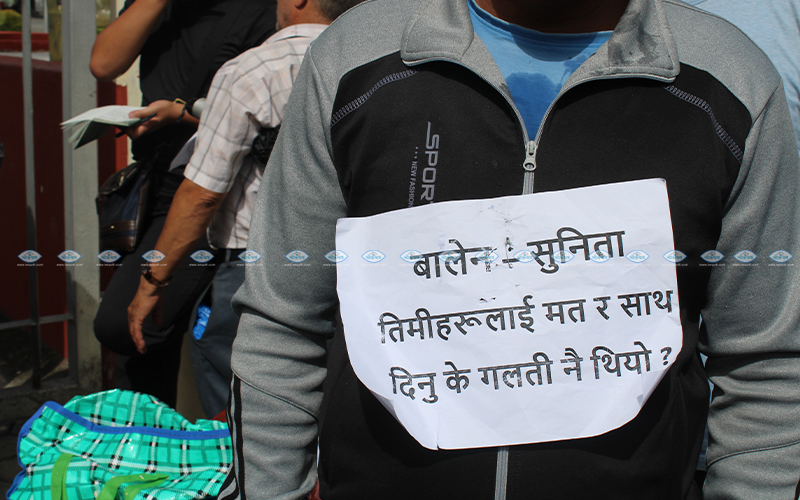 SPOR
... NEW FASHION
बालेन - सुनिता
तिमीहरूलाई मत र साथ
दिनु के गलती नै थियो ?